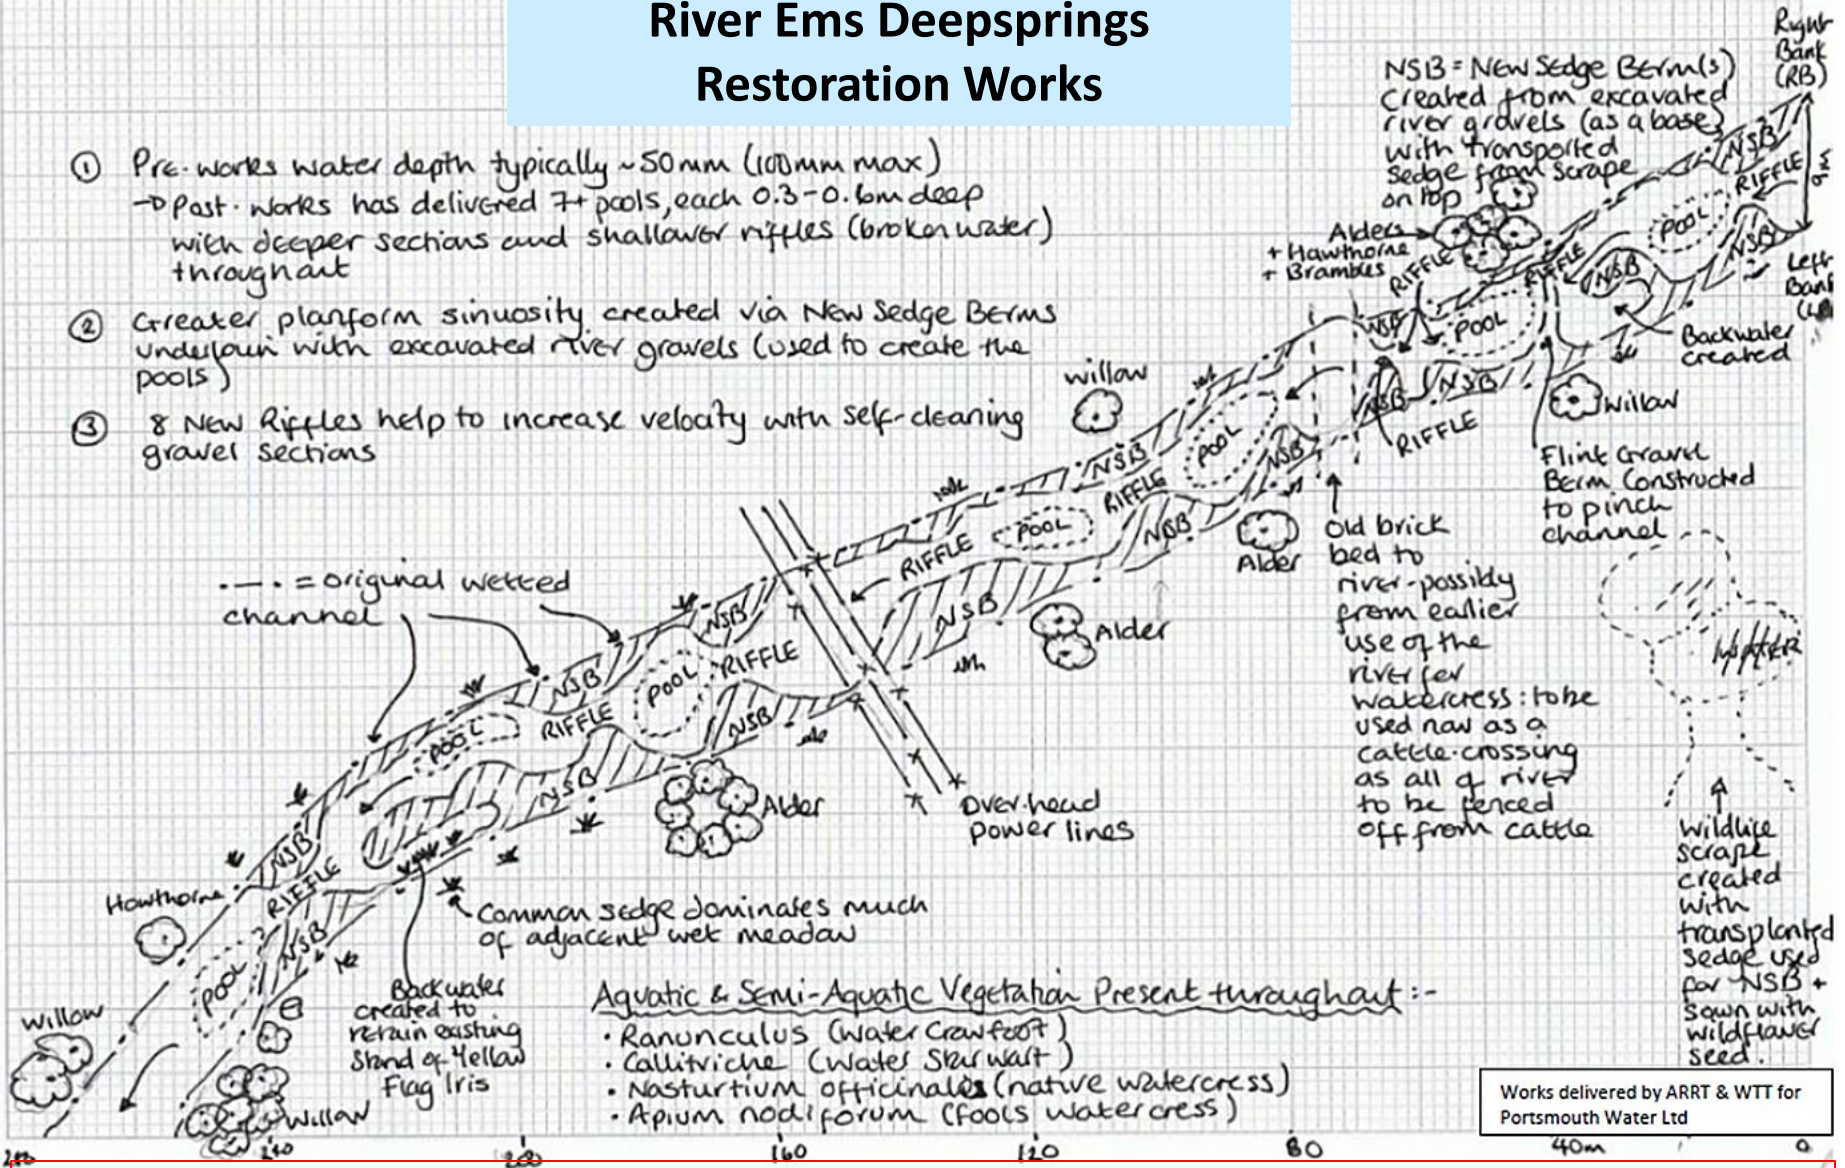 River Ems Deepsprings
Restoration Works
① Pre-works water depth typically ~50mm (100mm max)
→ Post-works has delivered 7+ pools, each 0.3-0.6m deep
with deeper sections and shallower riffles (broken water)
throughout
② Greater planform sinuosity created via New Sedge Berms
underlain with excavated river gravels (used to create the
pools)
③ 8 New Riffles help to increase velocity with self-cleaning
gravel sections
NSB = New Sedge Berm(s)
created from excavated
river gravels (as a base)
with transported
sedge from scrape
on top
Right
Bank
(RB)
9m
Left
Bank
Alders
+ Hawthorne
+ Brambles
NSB
RIFFLE
POOL
NSB
NSB
RIFFLE
RIFFLE
NSB
POOL
NSB
NSB
RIFFLE
Backwater
created
Willow
Flint Gravel
Berm Constructed
to pinch
channel
Willow
POOL
NSB
NSB
RIFFLE
NSB
POOL
RIFFLE
NSB
Alder
Alder
Old brick
bed to
river-possibly
from earlier
use of the
river for
watercress: to be
used now as a
cattle-crossing
as all of river
to be fenced
off from cattle
·—·—· = original wetted
channel
NSB
RIFFLE
POOL
NSB
NSB
RIFFLE
POOL
NSB
Alder
Over-head
power lines
NSB
RIFFLE
NSB
POOL
Hawthorne
Willow
Willow
Common sedge dominates much
of adjacent wet meadow
Backwater
created to
retain existing
stand of Yellow
Flag Iris
WATER
Wildlife
scrape
created
with
transplanted
sedge used
for NSB +
sown with
wildflower
seed.
Aquatic & Semi-Aquatic Vegetation Present throughout:-
• Ranunculus (Water Crowfoot)
• Callitriche (Water Starwort)
• Nasturtium officinales (native watercress)
• Apium nodiforum (fools watercress)
Works delivered by ARRT & WTT for
Portsmouth Water Ltd
240 200 160 120 80 40m 0